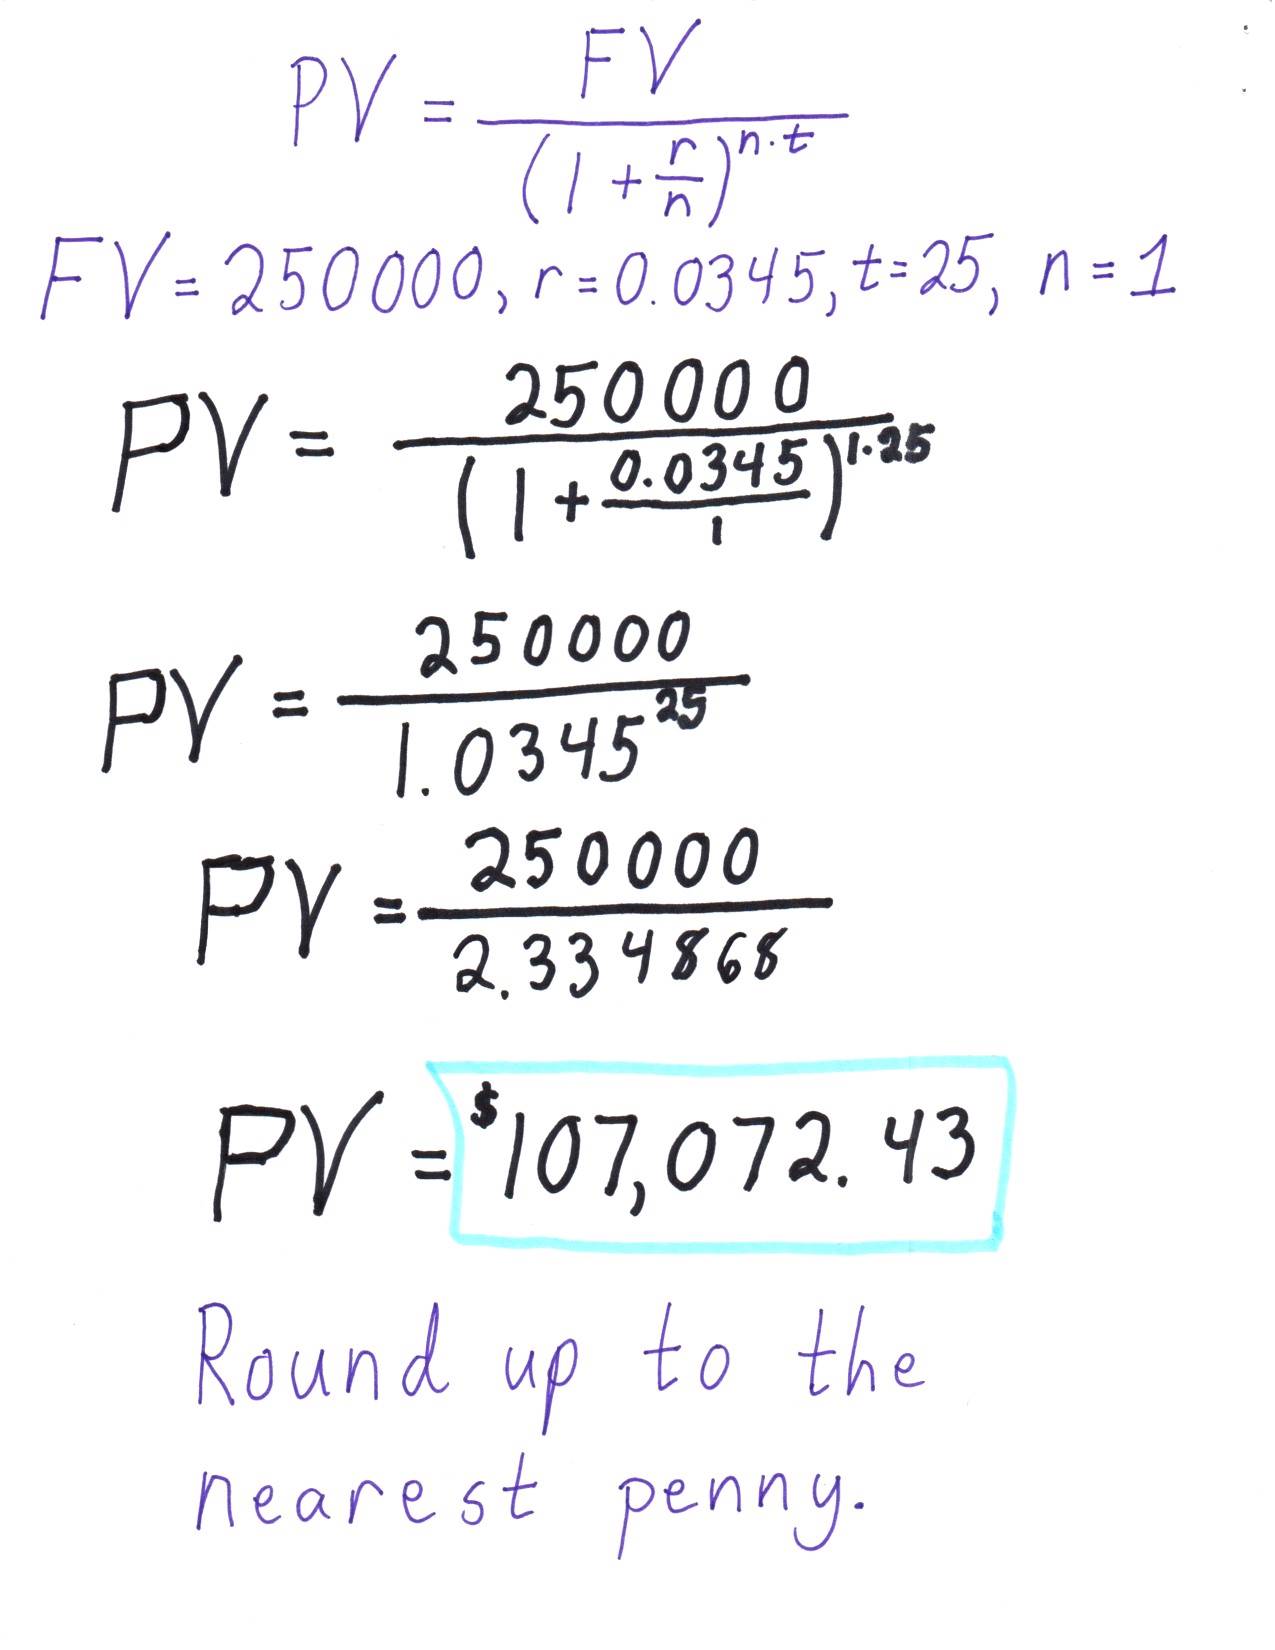 PV = FV / (1 + r/n)^n·t
FV = 250000, r = 0.0345, t = 25, n = 1
PV = 250000 / (1 + 0.0345/1)^1·25
PV = 250000 / 1.0345^25
PV = 250000 / 2.334868
PV = $107,072.43
Round up to the
nearest penny.